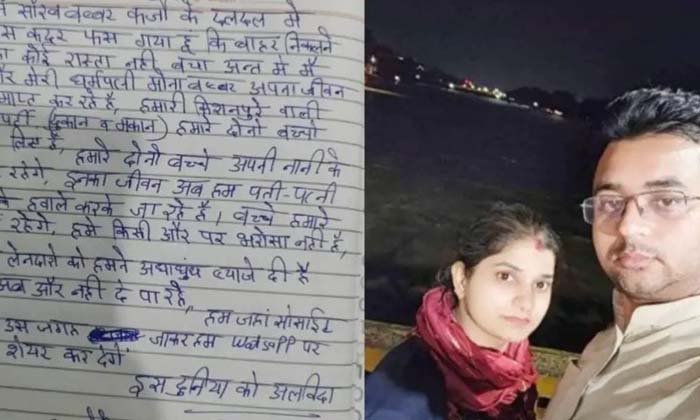 सौरव बब्बर कर्जो के दलदल में
कदर फंस गया हूं कि बाहर निकलने
कोई रास्ता नहीं बचा अन्त में मैं
मेरी धर्मपत्नी मोना बब्बर अपना जीवन
कर रहे है, हमारी किशनपुरे वाली
(दुकान व मकान) हमारे दोनो बच्चो
है, हमारे दोनो बच्चे अपनी नानी के
रहेगे, इनका जीवन अब हम पती-पत्नी
हवाले करके जा रहे है, बच्चे हमारे
रहेगे, हमे किसी और पर भरोसा नही है,
लेनदारो को हमने अंधाधुंध ब्याजे दी है
और नही दे पा रहे,
हम जहां सोसाईट
उस जगह जाकर हम पर
शेयर कर देगें
इस दुनिया को अलविदा